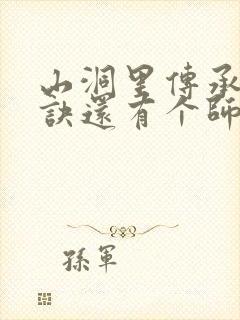 山洞里傳承
訣還有个師
孫軍